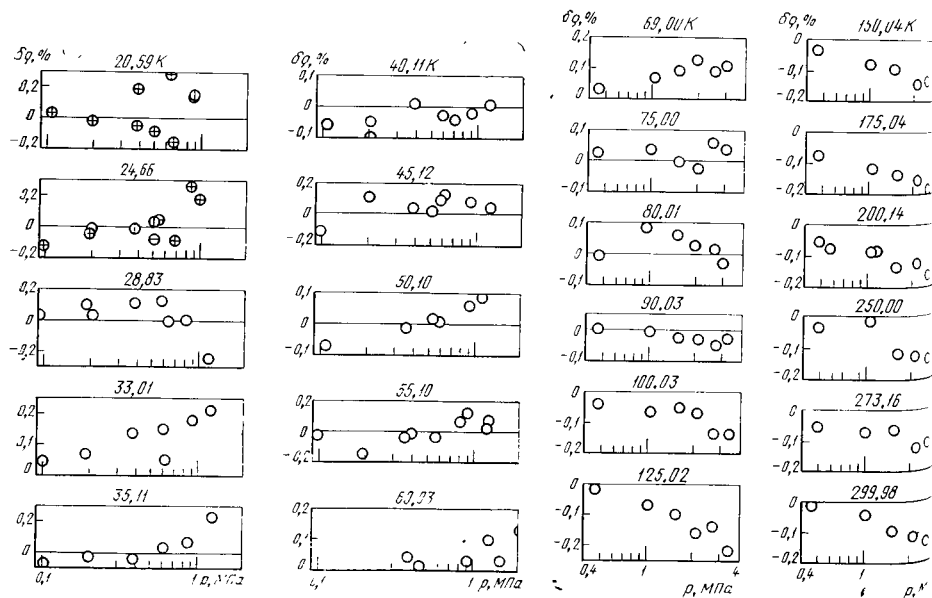 δϱ,%
20,59 K
0,2
0
-0,2
24,66
0,2
0
-0,2
28,83
0,2
0
-0,2
33,01
0,2
0,1
0
35,11
0,2
0
0,1
1 p, МПа
δϱ,%
40,11 K
0,1
0
-0,1
45,12
0,2
0
-0,2
50,10
0,1
0
-0,1
55,10
0,2
0
0,2
0,1
0
0,1
1 p, МПа
δϱ,%
69,00 K
0,2
0,1
0
75,00
0,1
0
-0,1
80,01
0,1
0
-0,1
90,03
0
-0,1
100,03
0
-0,1
-0,2
125,02
0
-0,1
-0,2
0,4
1
4
p, МПа
δϱ,%
150,04 K
0
-0,1
-0,2
175,04
0
-0,1
-0,2
200,14
0
-0,1
-0,2
250,00
0
-0,1
-0,2
273,16
0
-0,1
-0,2
299,98
0
-0,1
-0,2
0,4
1
p,